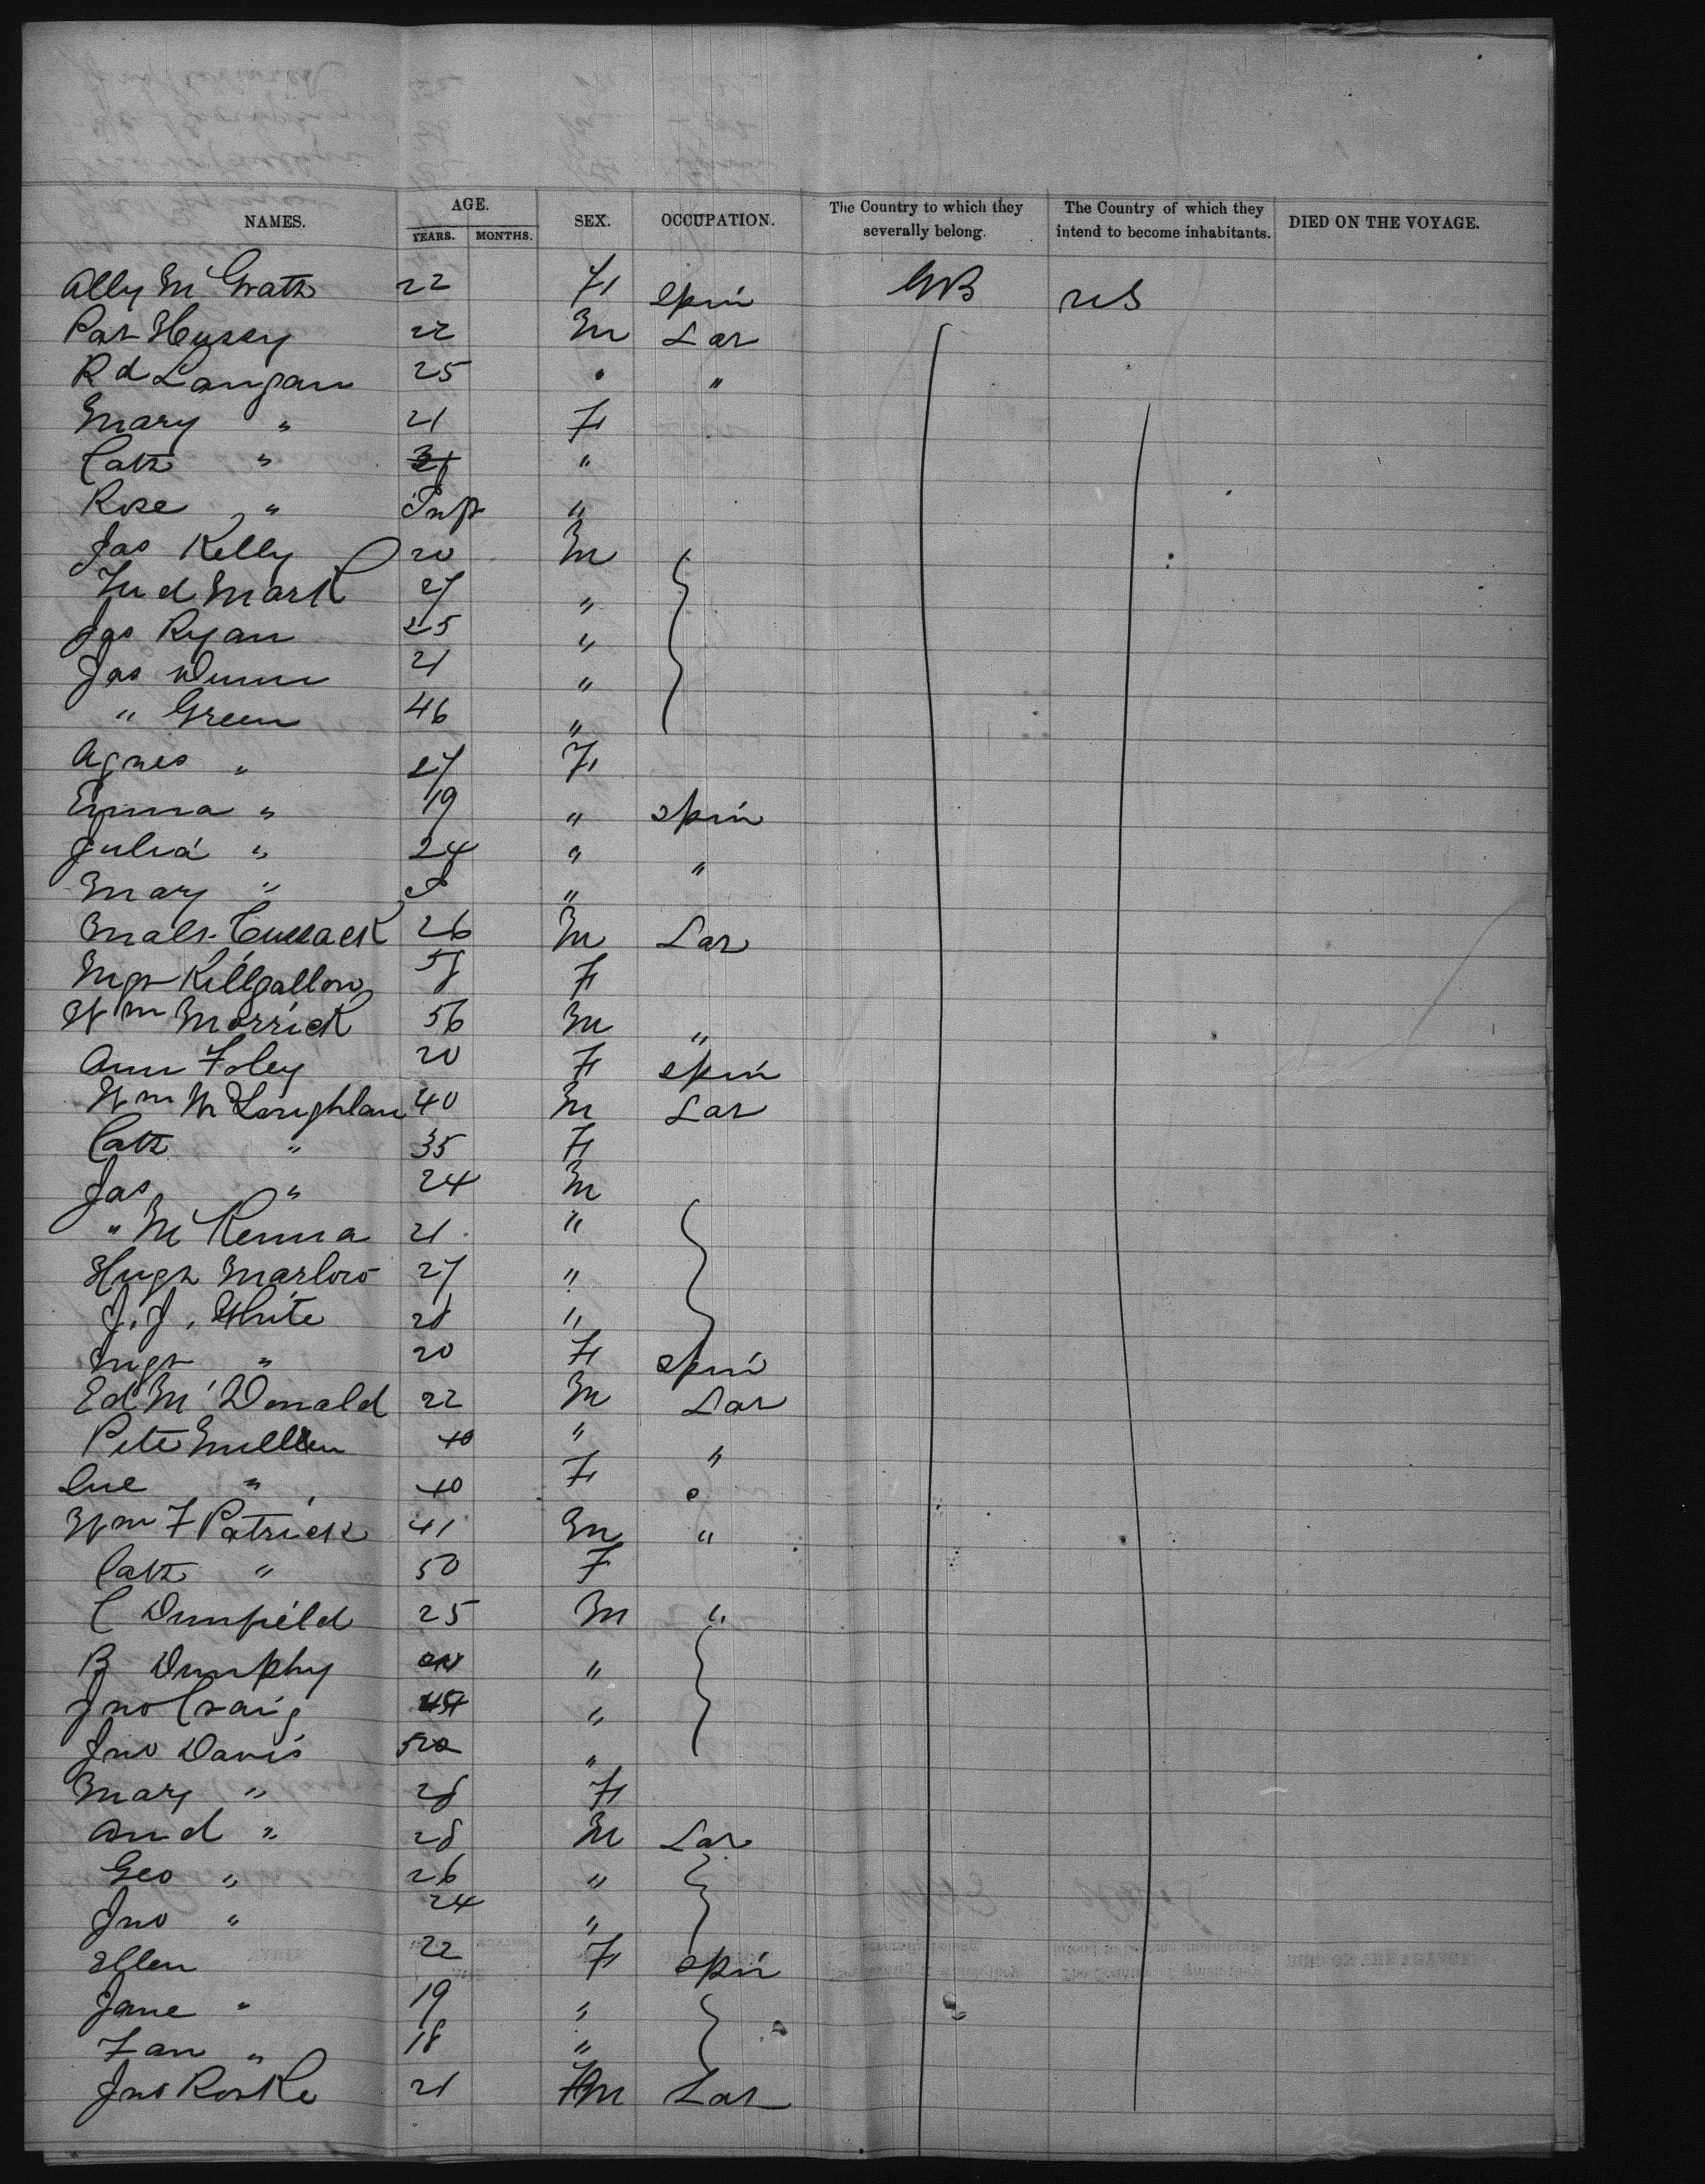 NAMES. AGE. YEARS. MONTHS. SEX. OCCUPATION. The Country to which they severally belong. The Country of which they intend to become inhabitants. DIED ON THE VOYAGE.
Ally McGrath 22 F spin GB US
Pat Hussey 22 M Lar
Rd Langan 25 " "
Mary " 21 F
Cath " "
Rose " Inft "
Jas Kelly 20 M
Mark 27 "
Jas Ryan 25 "
Jas Dunn 21 "
" Green 46 "
Agnes " 27 F
Emma " 19 " spin
Julia " 24 " "
Mary " "
Cusack 26 M Lar
Mgt Killgallon 58 F
Wm Morrick 56 M "
Ann Foley 20 F spin
Wm McLoughlan 40 M Lar
Cath " 35 F
Jas " 24 M
" McKenna 21 "
Hugh Marlow 27 "
J. J. White 28 "
Mgt " 20 F spin
Ed McDonald 22 M Lar
Pete Mullen 40 " "
" 40 F "
Wm F Patrick 41 M "
Cath " 50 F
C Dunfield 25 M "
B Dunphy "
Jno Craig "
Jno Davis "
Mary " 28 F
And " 28 M Lar
Geo " 26 "
Jno " 24 "
Ellen 22 F spin
Jane " 19 "
Fan " 18 "
Jno Rorke 21 M Lar